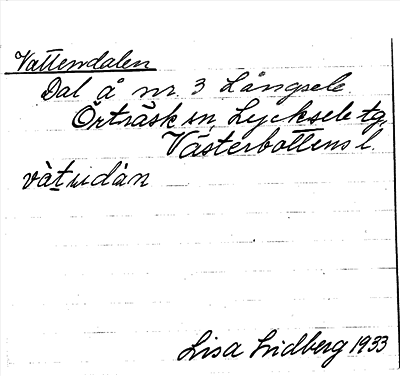 Vattendalen
Dal å nr. 3 Långsele
Örträsk sn, Lycksele tg,
Västerbottens l.
Lisa Lidberg 1933